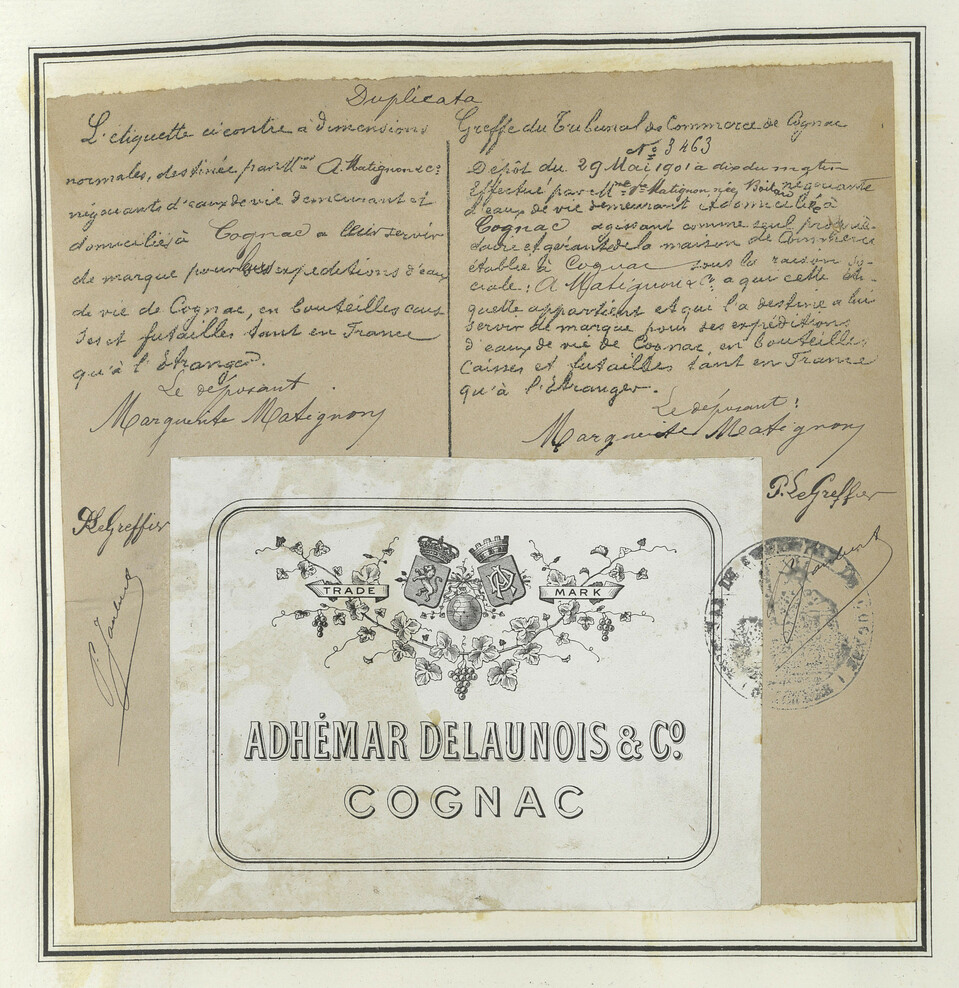 Duplicata
L'étiquette ci contre à dimensions
normales, destinée par Mmes A. Matignon & Co
négociants d'eaux de vie demeurant et
domiciliés à Cognac a leur servir
de marque pour leurs expéditions d'eaux
de vie de Cognac, en bouteilles cais
ses et futailles tant en France
qu'à l'Étranger.
Le déposant
Marguerite Matignon
P. Le Greffier
Greffe du Tribunal de Commerce de Cognac
No 3463
Dépôt du 29 Mai 1901 à dix du matin
Effectué par Mme Ve Matignon, née négociante
d'eaux de vie demeurant et domiciliée à
Cognac agissant comme seul proprié-
taire et gérant de la maison de Commerce
établie à Cognac sous la raison so-
ciale : A. Matignon & Co. à qui cette éti-
quette appartient et qui l'a destinée à lui
servir de marque pour ses expéditions
d'eaux de vie de Cognac, en bouteilles
caisses et futailles tant en France
qu'à l'Étranger.
Le déposant :
Marguerite Matignon
P. Le Greffier
TRADE MARK
ADHÉMAR DELAUNOIS & Co.
COGNAC